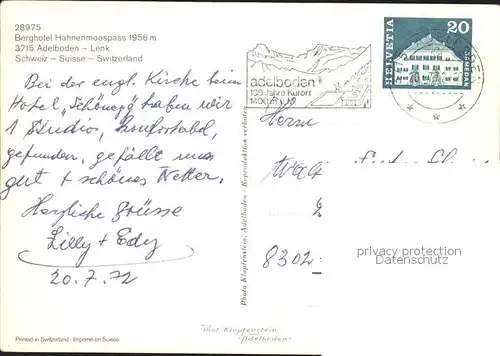 28975
Berghotel Hahnenmoospass 1956 m
3715 Adelboden – Lenk
Schweiz – Suisse – Switzerland
Bei der engl. Kirche beim
Hotel „Schönegg" haben wir
1 Studios, komfortabel,
gefunden, gefällt uns
gut + schönes Wetter.
Herzliche Grüsse
Lilly + Edy
20.7.72
Printed in Switzerland - Imprimé en Suisse
Photo Klopfenstein, Adelboden - Reproduktion verboten
Phot. Klopfenstein
"Adelboden"
adelboden
100 Jahre Kurort
1400 m ü. M.
HELVETIA
20
Herrn
8302
privacy protection
Datenschutz